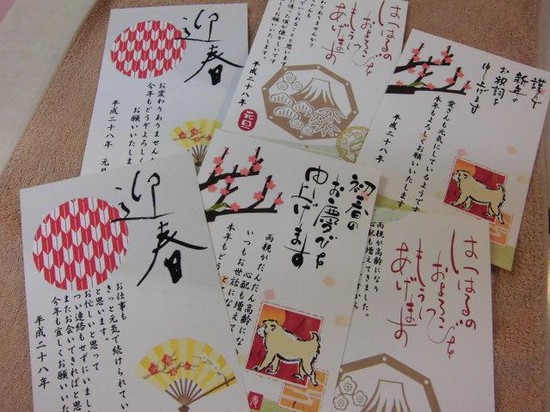 迎春
お変わりありませんか
今年もどうぞよろしく
お願いいたします
平成二十八年 元旦
はつはるの
およろこびを
もうし
あげます
お願いいたします
平成二十八年
元旦
謹んで
新年の
お祝詞を
申し上げます
皆さんも元気にしているようです
本年もよろしくお願いいたします
平成二十八年
迎春
お仕事も
きっと元気で続けられてい
と思います
お忙しいと思って
つい連絡もせずにいまし
またお会いできればと思
今年も宜しくお願いい
平成二十八年
初春の
お慶びを
申し上げます
両親がだんだん高齢にな
心配も増えて
いつもお世話にな
本年もどうぞ
平成二十八年
はつはるの
およろこびを
もうし
あげます
両親が高齢になり
心配も増えてきました